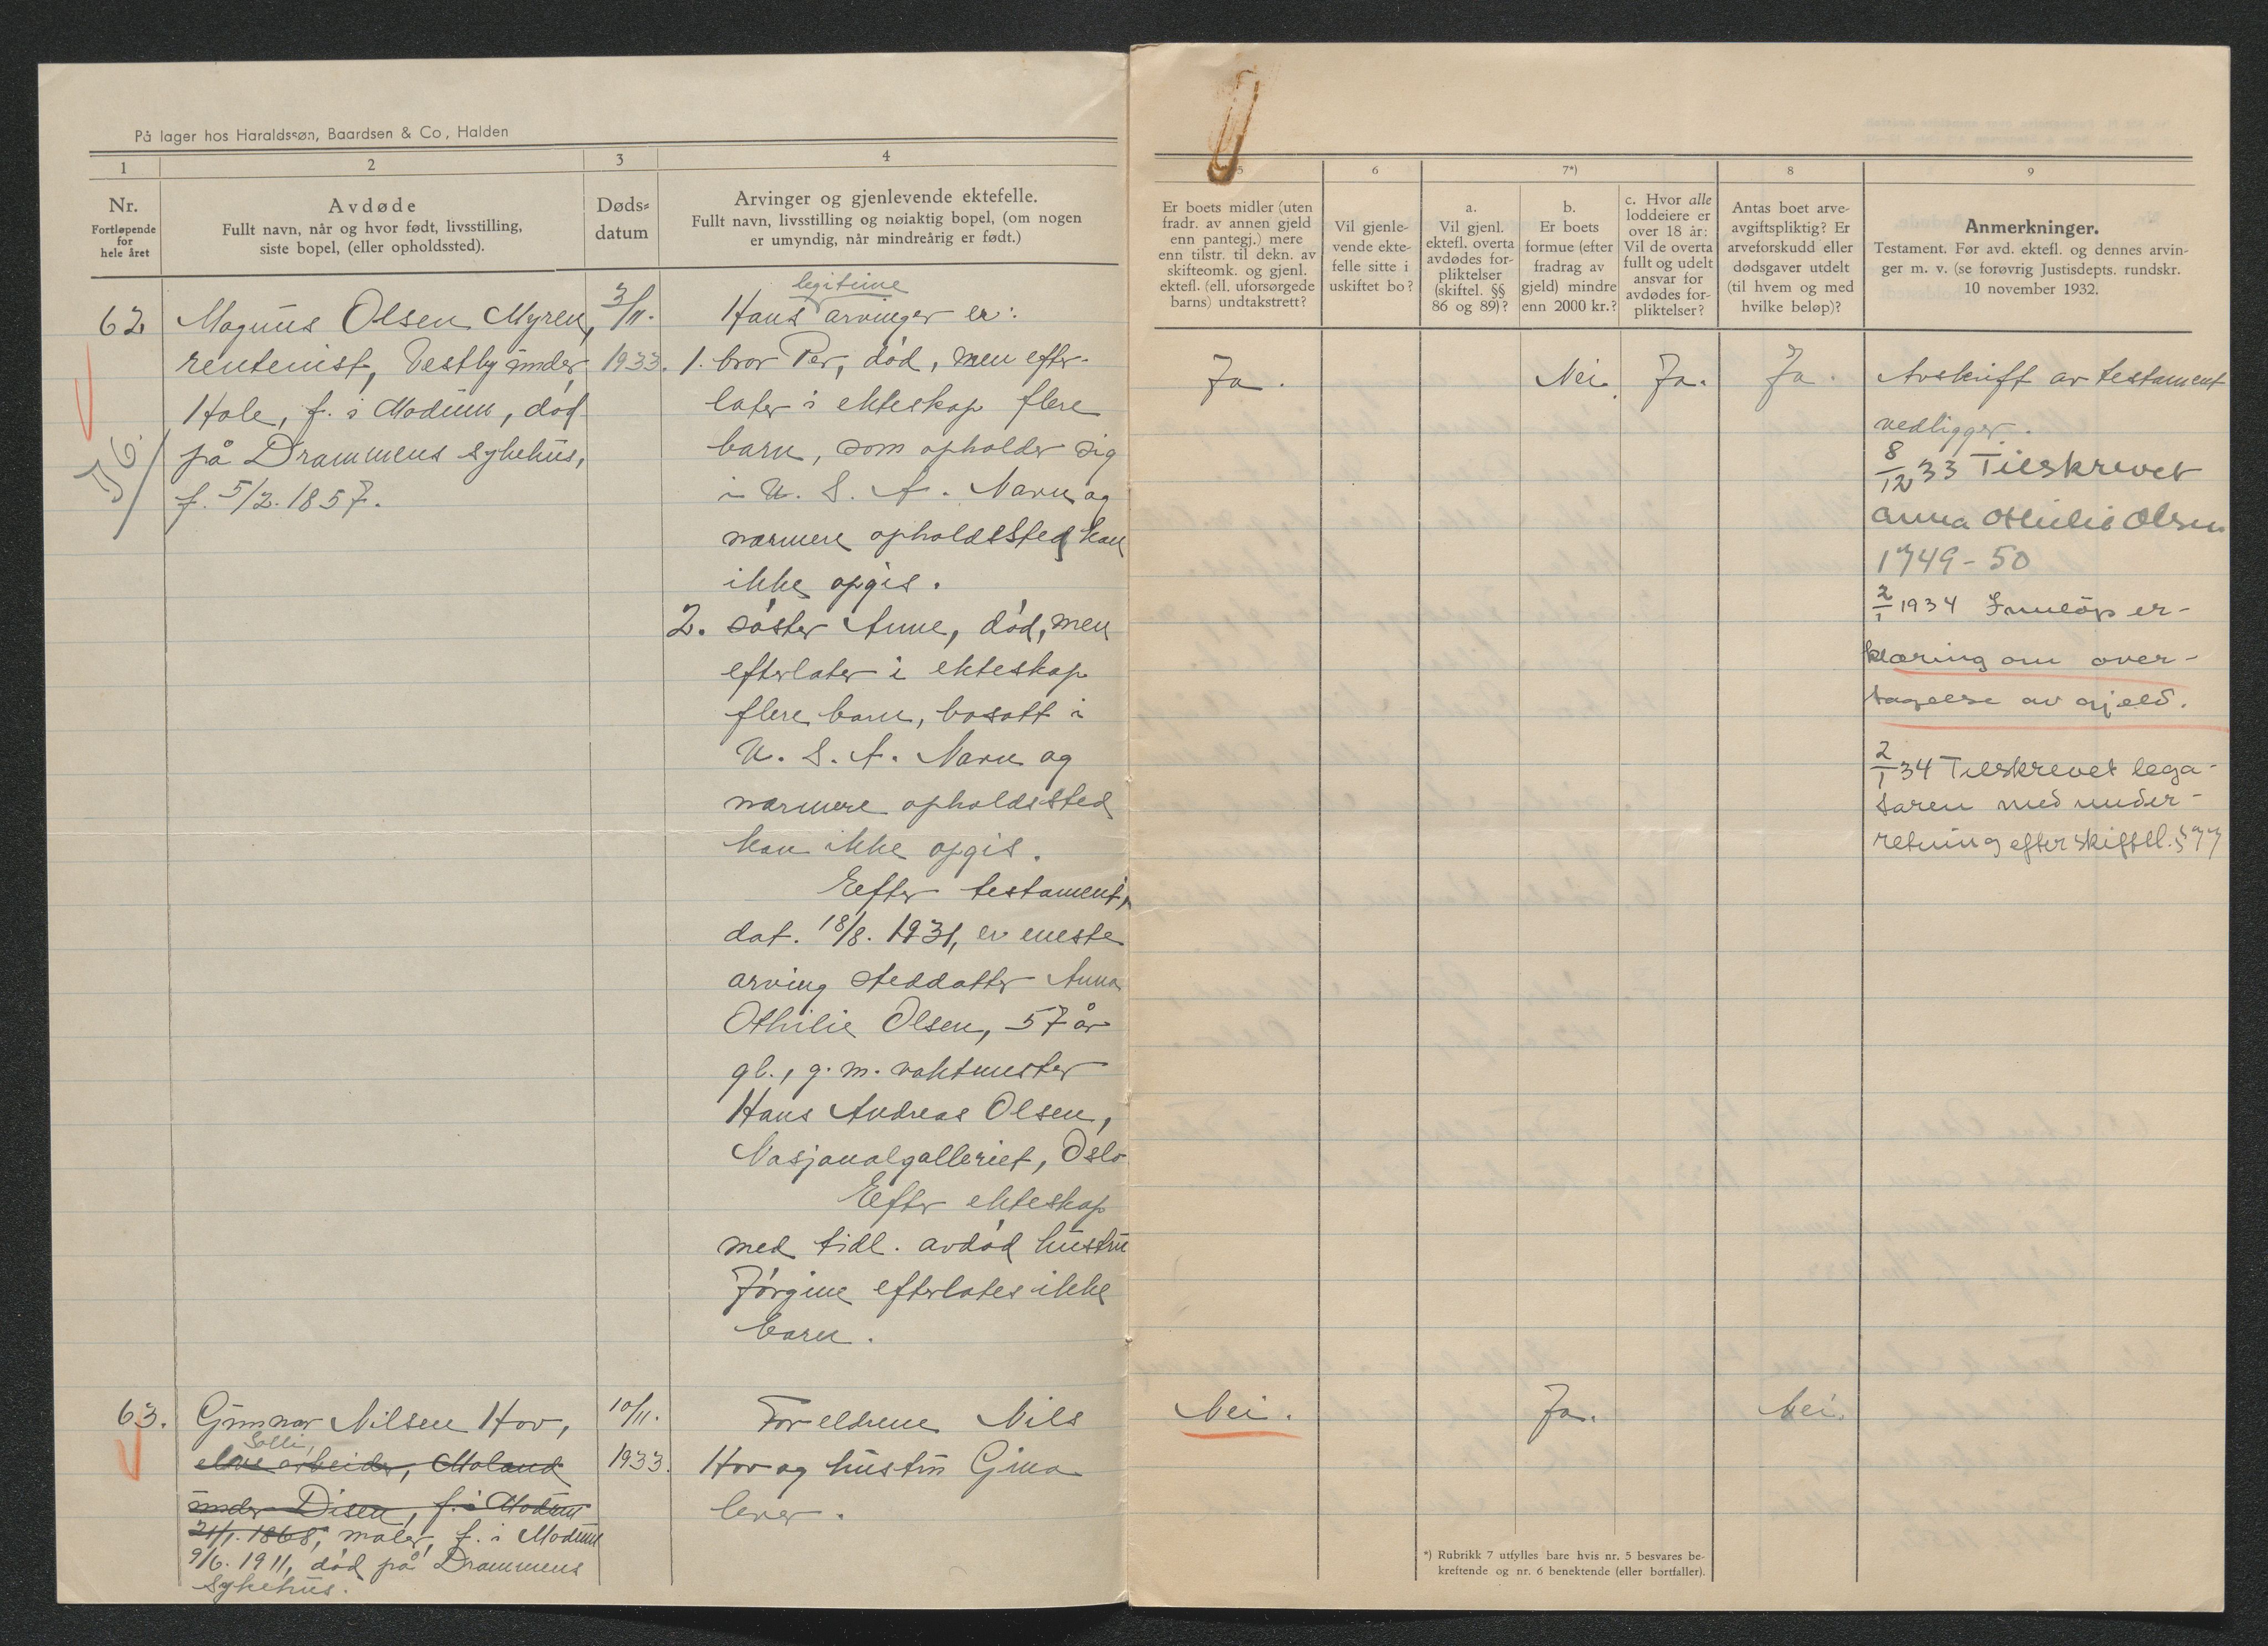 På lager hos Haraldssøn, Baardsen & Co, Halden
1
2
3
4
Nr.
Fortløpende
for
hele året
Avdøde
Fullt navn, når og hvor født, livsstilling,
siste bopel, (eller opholdssted).
Døds-
datum
Arvinger og gjenlevende ektefelle.
Fullt navn, livsstilling og nøiaktig bopel, (om nogen
er umyndig, når mindreårig er født.)
62
Magnus Olsen Myren,
rentenist, Vestby under
Hole, f. i Modum, død
på Drammens sykehus,
f. 5/2. 1857.
3/11.
1933.
legitime
Hans arvinger er:
1. bror Per, død, men efter-
later i ekteskap flere
barn, som opholder sig
i U. S. A. Navn og
nærmere opholdssted kan
ikke opgis.
2. søster Anne, død, men
efterlater i ekteskap
flere barn, bosatt i
U. S. A. Navn og
nærmere opholdssted
kan ikke opgis.
Efter testament,
dat. 18/8. 1931, er eneste
arving steddatter Anna
Othilie Olsen, 57 år
gl., g. m. vaktmester
Hans Andreas Olsen,
Nasjonalgalleriet, Oslo
Efter ekteskap
med tidl. avdød hustru
Jørgine efterlates ikke
barn.
63.
Gunnar Nilsen Hov,
Solli,
elvearbeider, Moland
under Disen, f. i Modum
21/1. 1868, maler, f. i Modum
9/6. 1911, død på Drammens
Sykehus.
10/11.
1933.
Foreldrene Nils
Hov og hustru Gina
lever.
5
6
7*)
8
9
Er boets midler (uten
fradr. av annen gjeld
enn pantegj.) mere
enn tilstr. til dekn. av
skifteomk. og gjenl.
ektefl. (ell. uforsørgede
barns) undtakstrett?
Vil gjenle-
vende ekte-
felle sitte i
uskiftet bo?
a.
Vil gjenl.
ektefl. overta
avdødes for-
pliktelser
(skiftel. §§
86 og 89)?
b.
Er boets
formue (efter
fradrag av
gjeld) mindre
enn 2000 kr.?
c. Hvor alle
loddeiere er
over 18 år:
Vil de overta
fullt og udelt
ansvar for
avdødes for-
pliktelser?
Antas boet arve-
avgiftspliktig? Er
arveforskudd eller
dødsgaver utdelt
(til hvem og med
hvilke beløp)?
Anmerkninger.
Testament. Før avd. ektefl. og dennes arvin-
ger m. v. (se forøvrig Justisdepts. rundskr.
10 november 1932.
Ja.
Nei.
Ja.
Ja.
Avskrift av testament
vedligger.
8/12 33 Tilskrevet
Anna Othilie Olsen
1749-50
2/1 1934 Innløp er-
klæring om over-
tagelse av gjeld.
2/1 34 Tilskrevet lega-
taren med under-
retning efter skiftel. § 77
Nei.
Ja.
Nei.
*) Rubrikk 7 utfylles bare hvis nr. 5 besvares be-
kreftende og nr. 6 benektende (eller bortfaller).